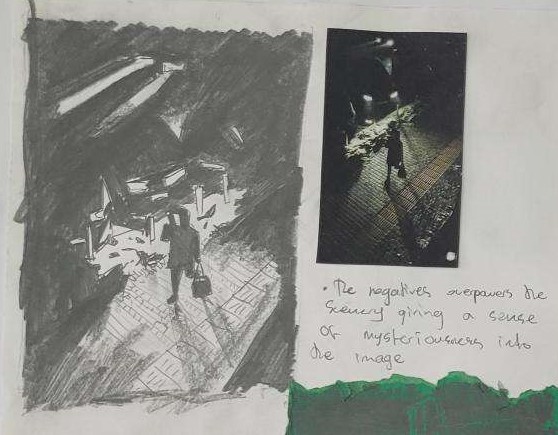 • The negatives overpowers the
scenery giving a sense
of mysteriousness into
the image